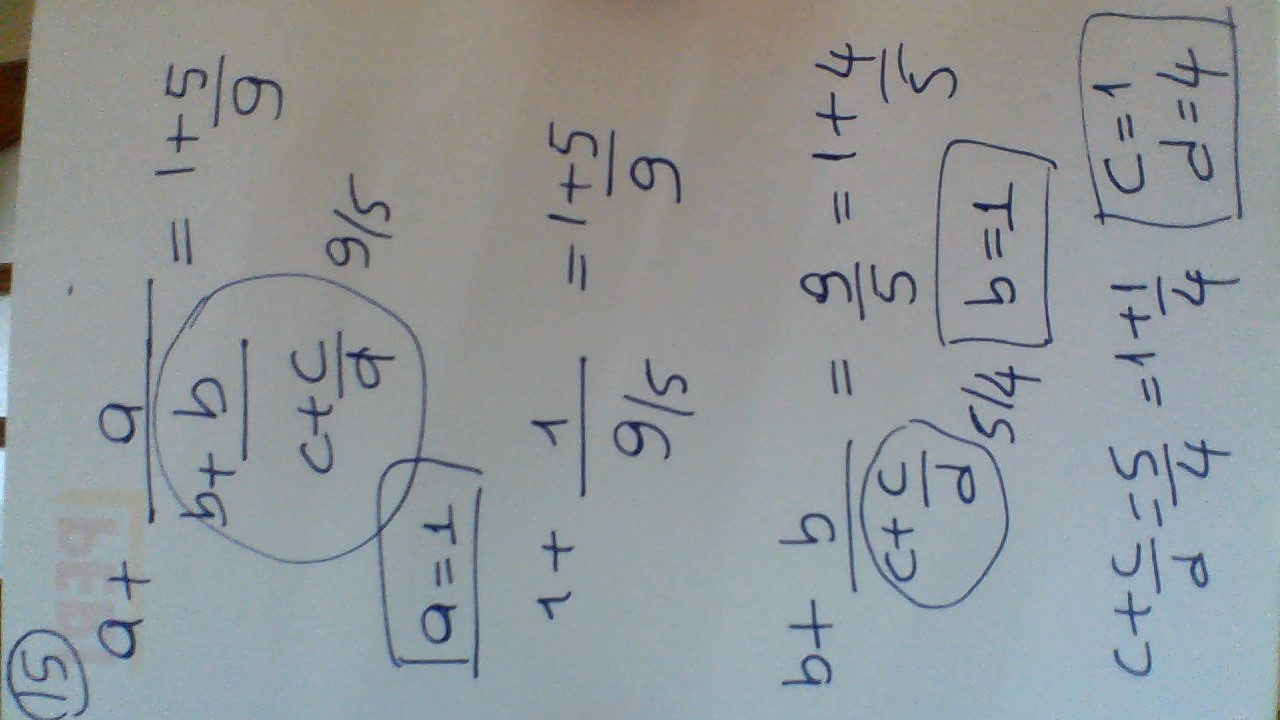 15
a + a / (b + b / (c + c/d)) = 1 + 5/9
9/5
a = 1
1 + 1 / (9/5) = 1 + 5/9
b + b / (c + c/d) = 9/5 = 1 + 4/5
5/4
b = 1
c + c/d = 5/4 = 1 + 1/4
c = 1
d = 4